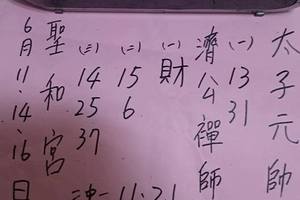 太子元帥
(一) 13 31
濟公禪師
(一) 財
(二) 15 6
(三) 14 25 37
聖和宮
6月11.14.16日
11.21